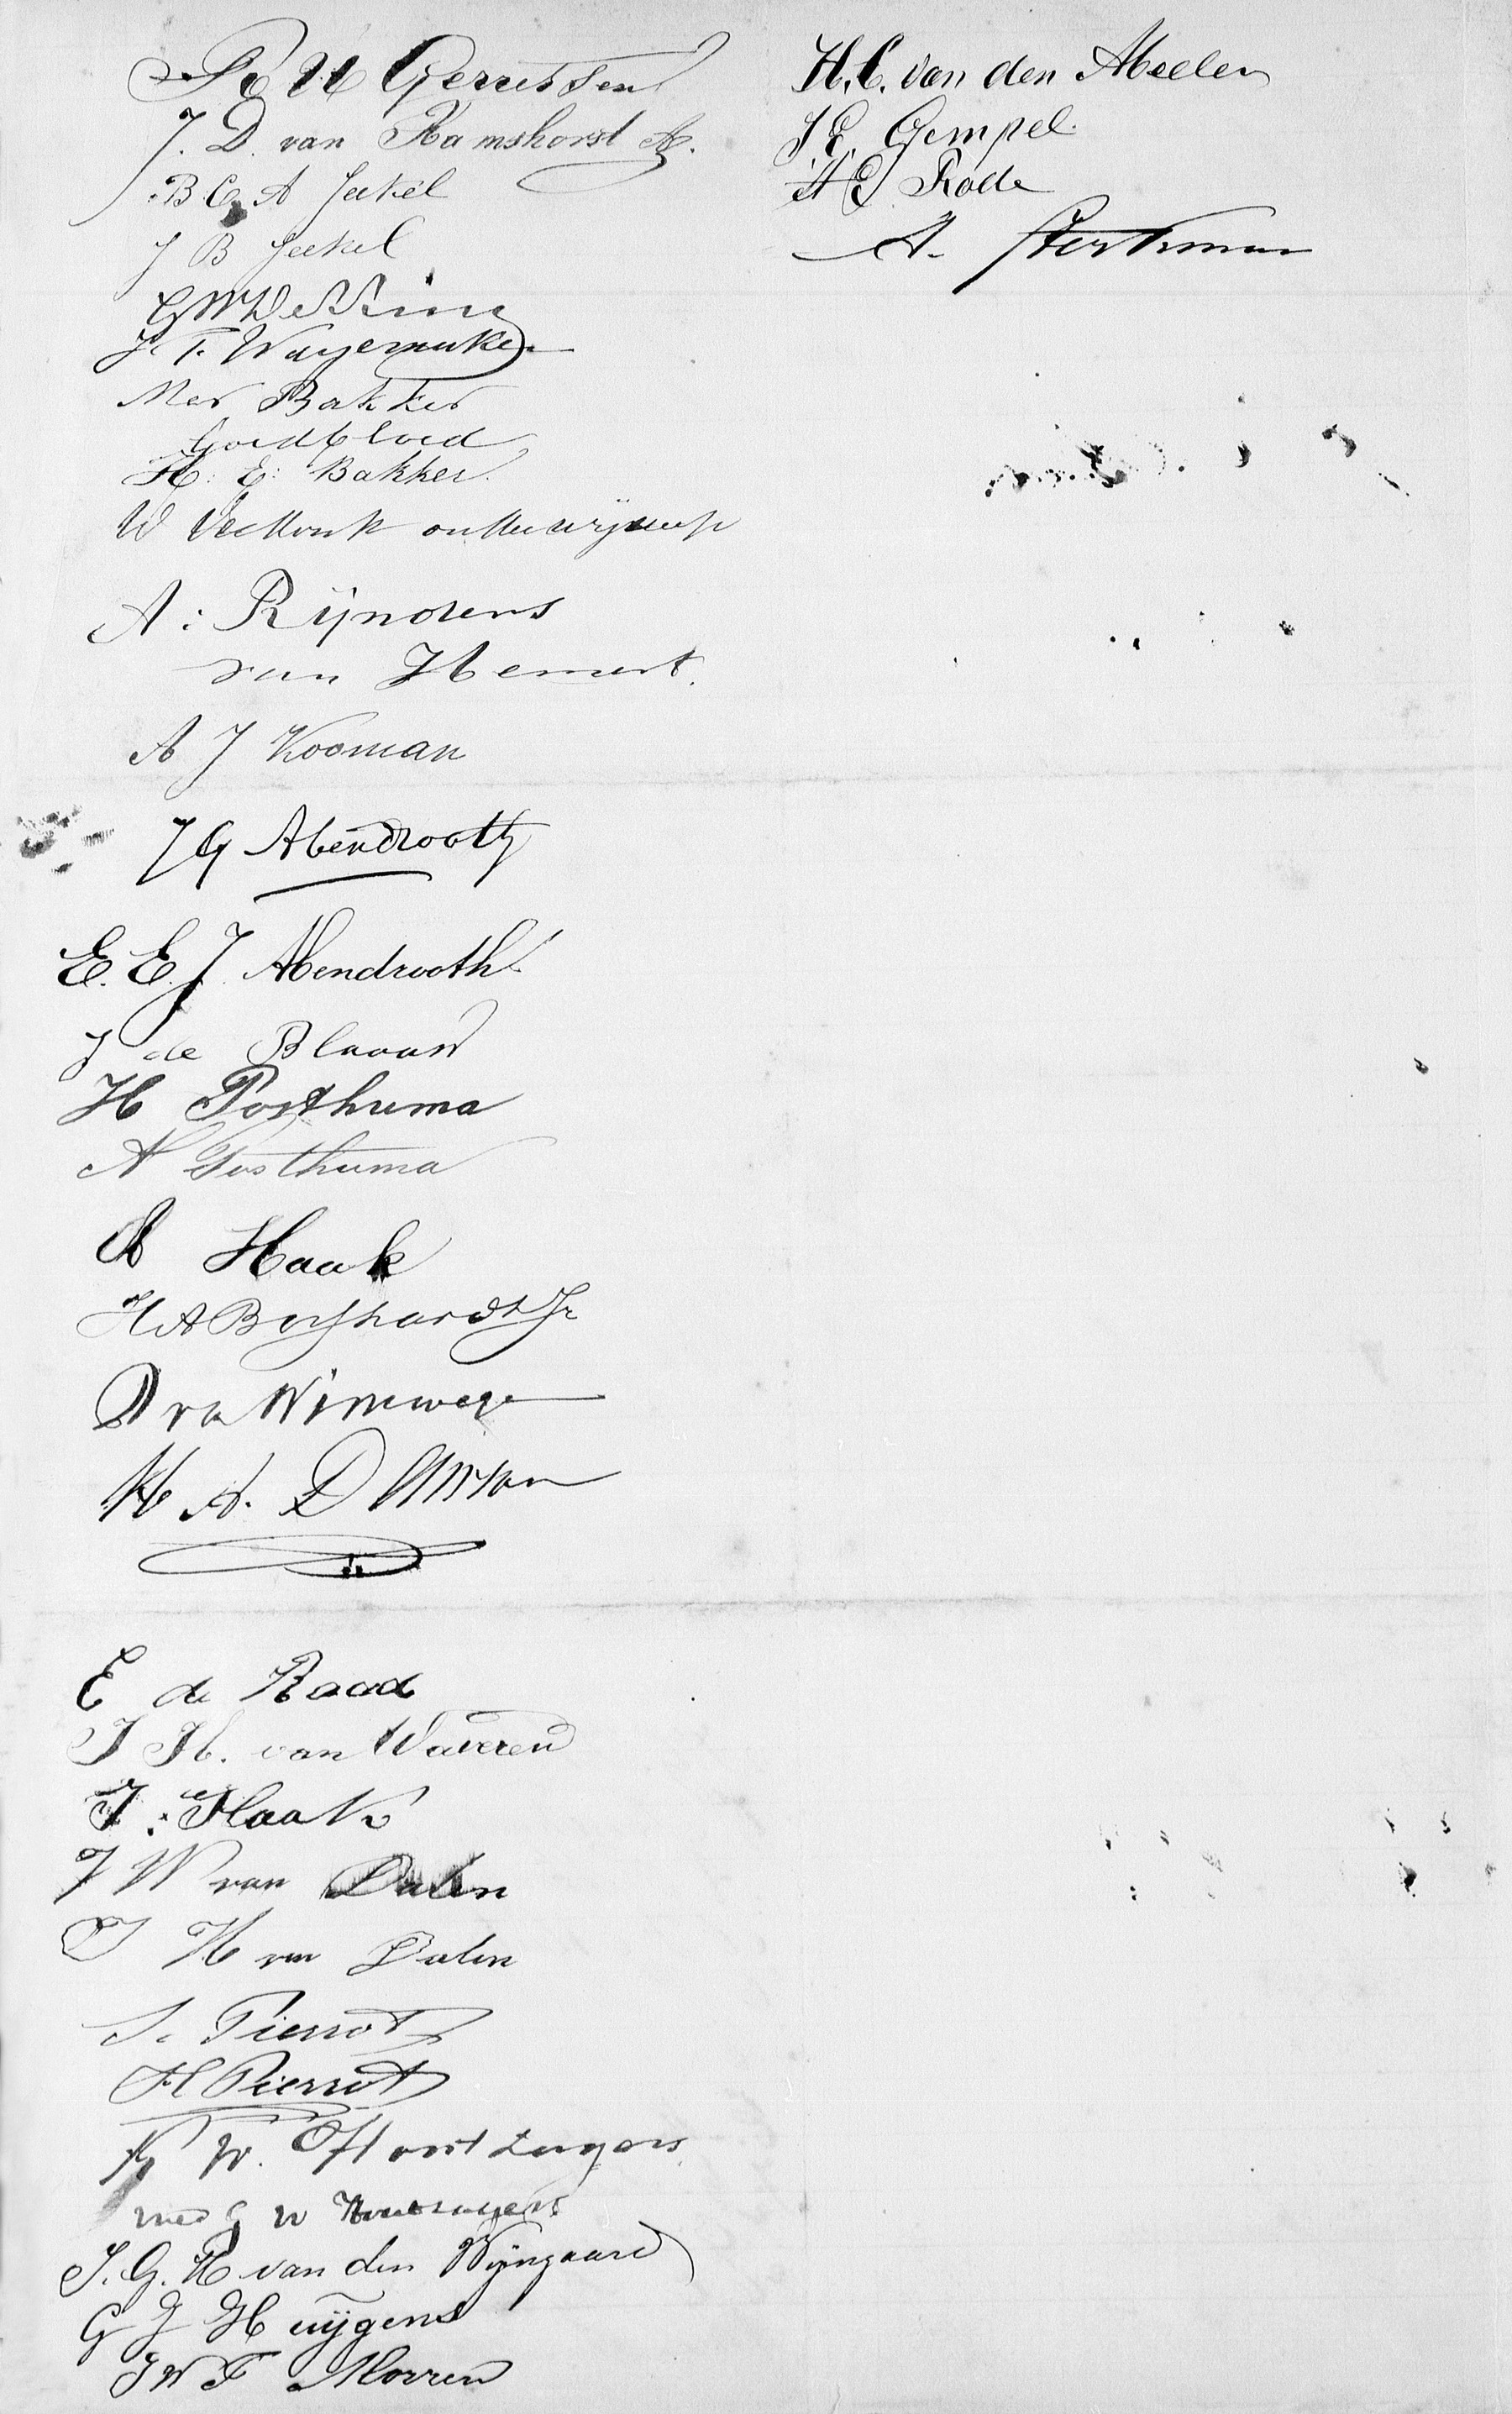 H Gerritsen
J. D. van Ramshorst
B C A Jeekel
J B Jeekel
G W
J. F. Wagemaker
Mev Bakker
Goedbloed
H: E: Bakker.
W
A: Rijnders
van Hemert.
A J Kooman
J G Abendrooth
E. E. J. Abendrooth
J de Blaauw
H Posthuma
N Posthuma
A Haak
H A
D van Nimwegen
H A. D
E de Raad
J H. van Waveren
J: Haak
J W van Dalen
J H van Dalen
Pierrot
H Pierrot
G W. Houtzagers
med G W Houtzagers
J. G. H van den Wijngaard
G J Huijgens
J W F Morren
H. C. van den Abeelen
J E. Gempel.
A E Rode
A. Sterkman